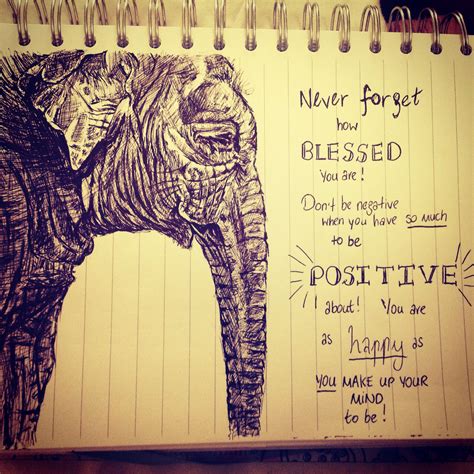 Never forget
how
BLESSED
You are!
Don't be negative
when you have so much
to be
POSITIVE
about! You are
as happy as
YOU MAKE UP YOUR
MIND
to be!